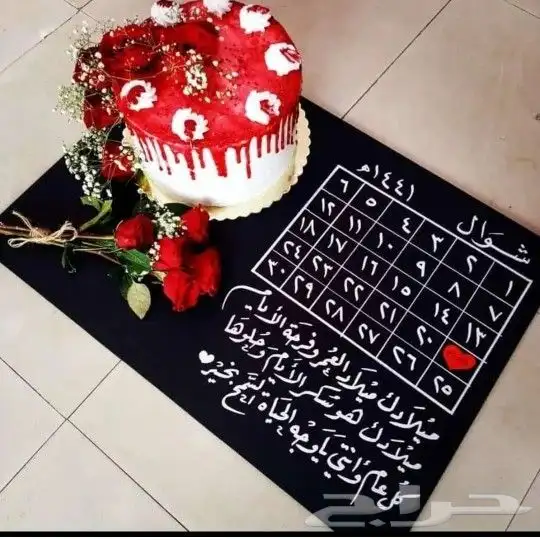 شوال ١٤٤١هـ
١ ٢ ٣ ٤ ٥ ٦
٧ ٨ ٩ ١٠ ١١ ١٢
١٣ ١٤ ١٥ ١٦ ١٧ ١٨
٢٠ ٢١ ٢٢ ٢٣ ٢٤
٢٥ ٢٦ ٢٧ ٢٨ ٢٩ ٣٠
ميلادك ميلاد العمر وفرحة الأيام
ميلادك هو سكر الأيام وحلوها
كل عام وانتي يا وجه الحياة
بخير
حراج